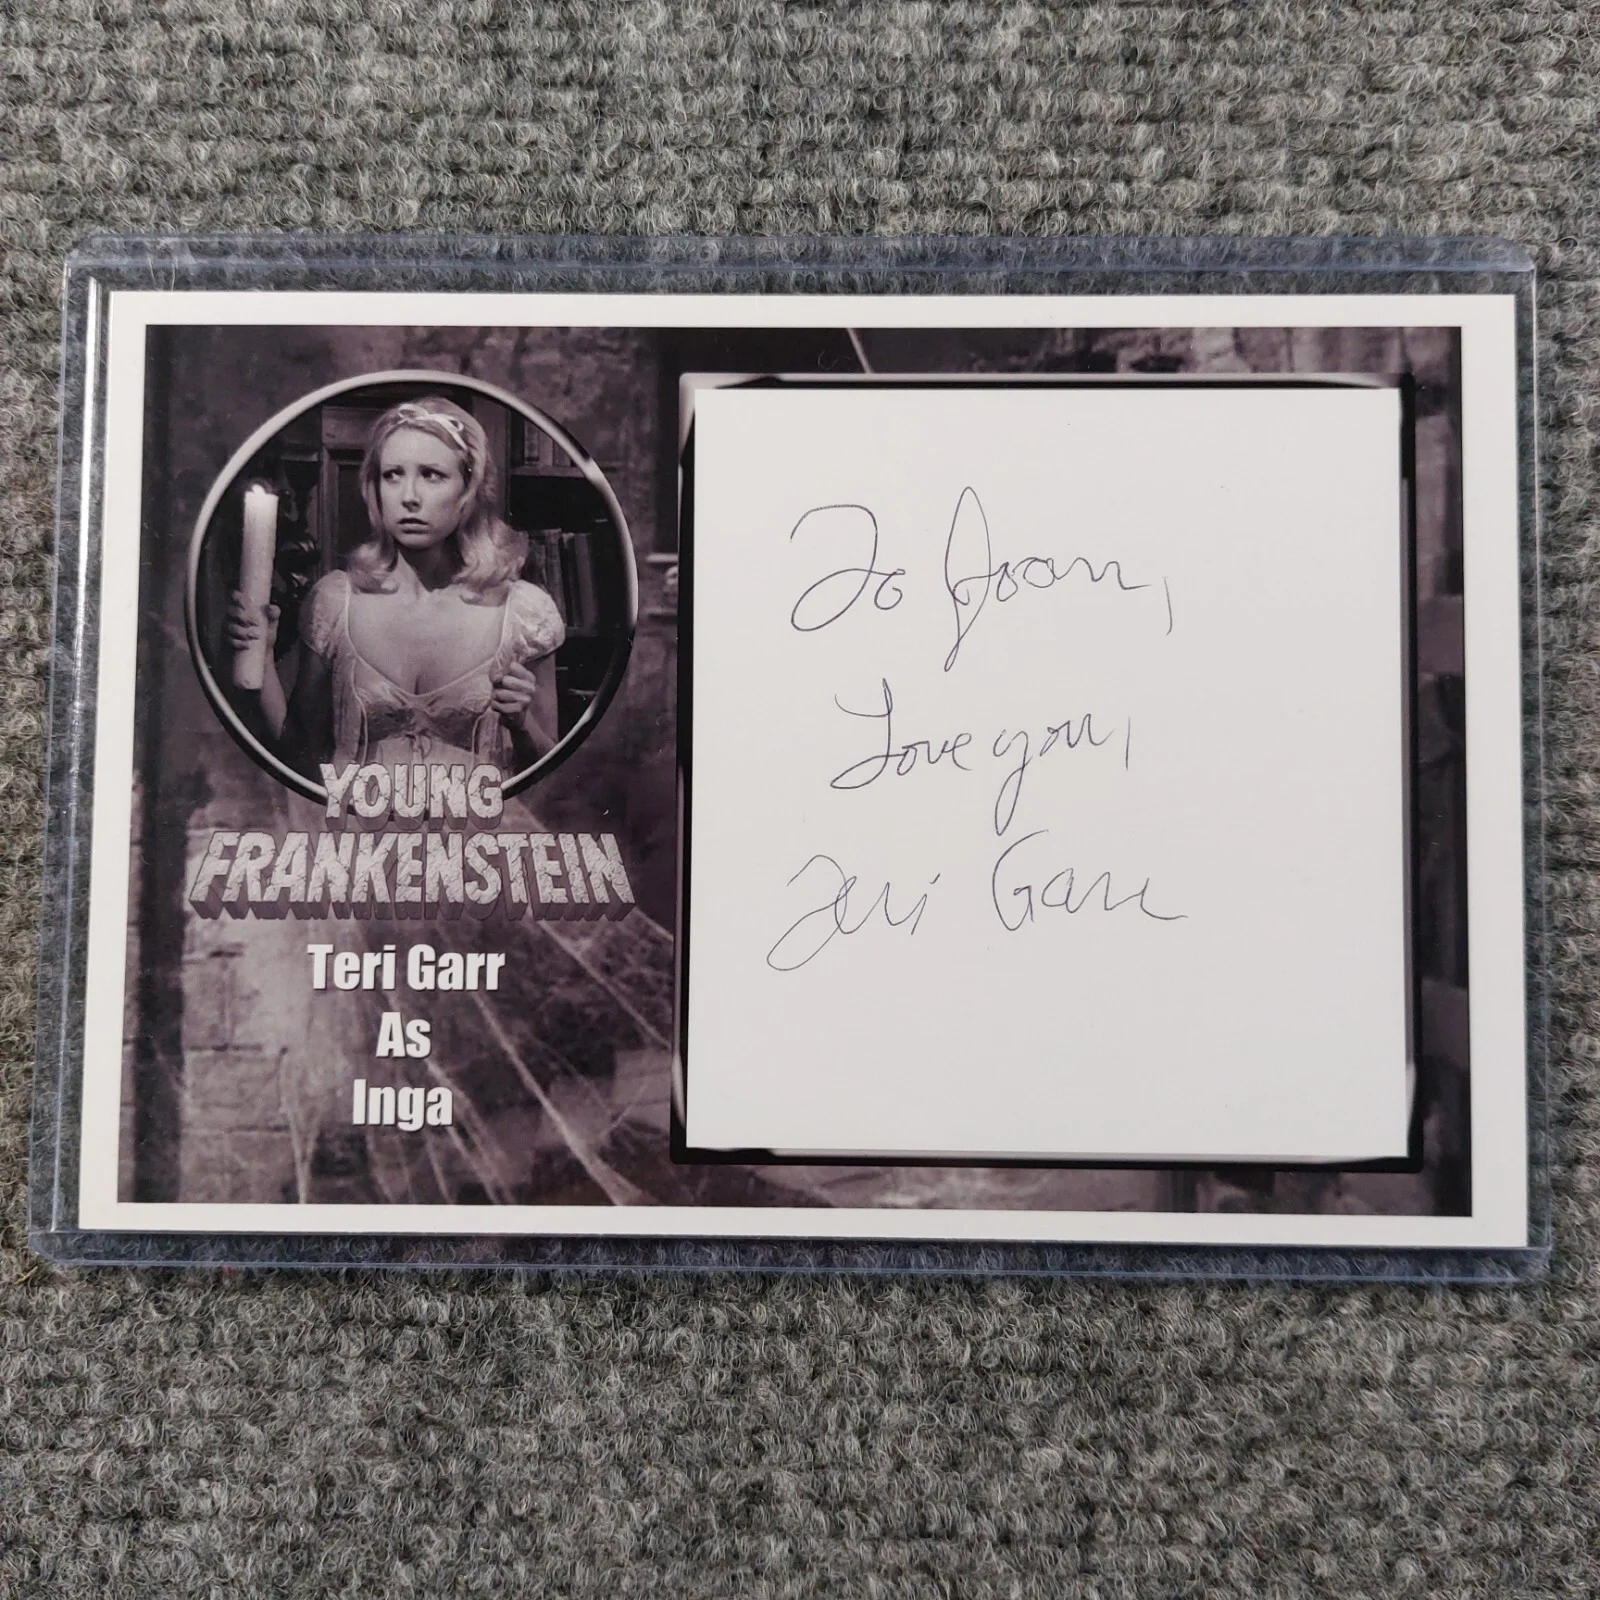 YOUNG
FRANKENSTEIN
Teri Garr
As
Inga
To Joan,
Love you,
Teri Garr